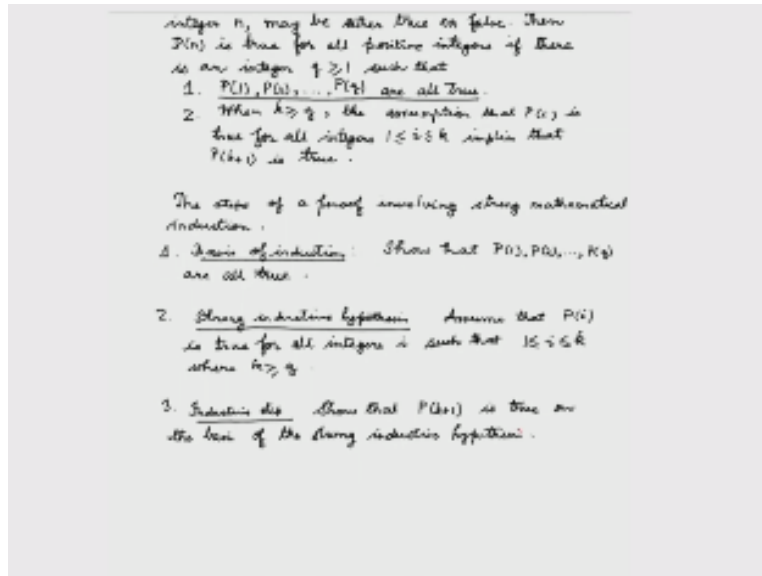 integer n, may be either true or false. Then
P(n) is true for all positive integers if there
is an integer q ≥ 1 such that
1. P(1), P(2), ..., P(q) are all True.
2. When k ≥ q, the assumption that P(i) is
true for all integers 1 ≤ i ≤ k implies that
P(k+1) is true.
The steps of a proof involving strong mathematical
induction.
1. Basis of induction: Show that P(1), P(2), ..., P(q)
are all true.
2. Strong inductive hypothesis Assume that P(i)
is true for all integers i such that 1 ≤ i ≤ k
where k ≥ q
3. Inductive step Show that P(k+1) is true on
the basis of the strong induction hypothesis.